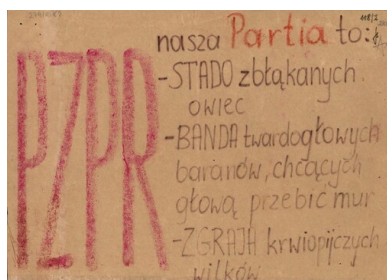 nasza Partia to:
PZPR
-STADO zbłąkanych
owiec
-BANDA twardogłowych
baranów, chcących
głową przebić mur
-ZGRAJA krwiopijczych
wilków